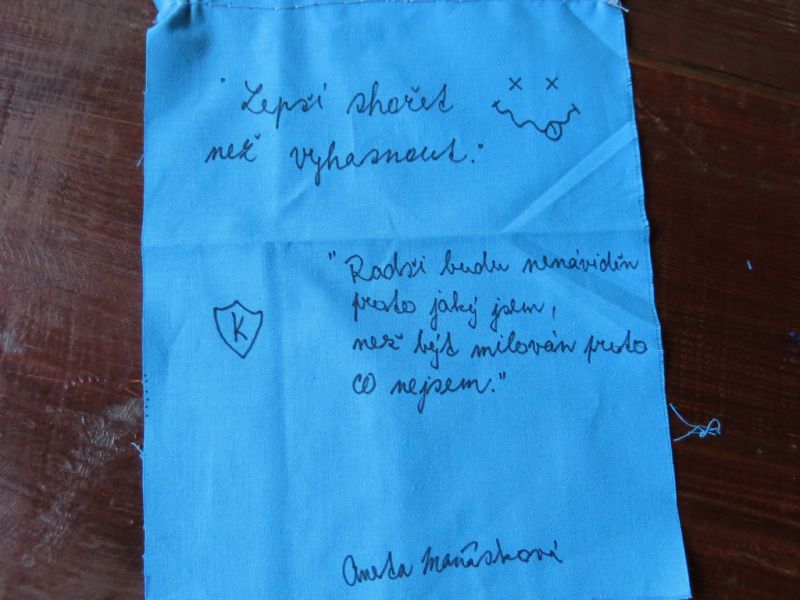 "Lepší shořet
než vyhasnout."
"Radši budu nenáviděn
proto jaký jsem,
než být milován proto
co nejsem."
K
Aneta Maňásková